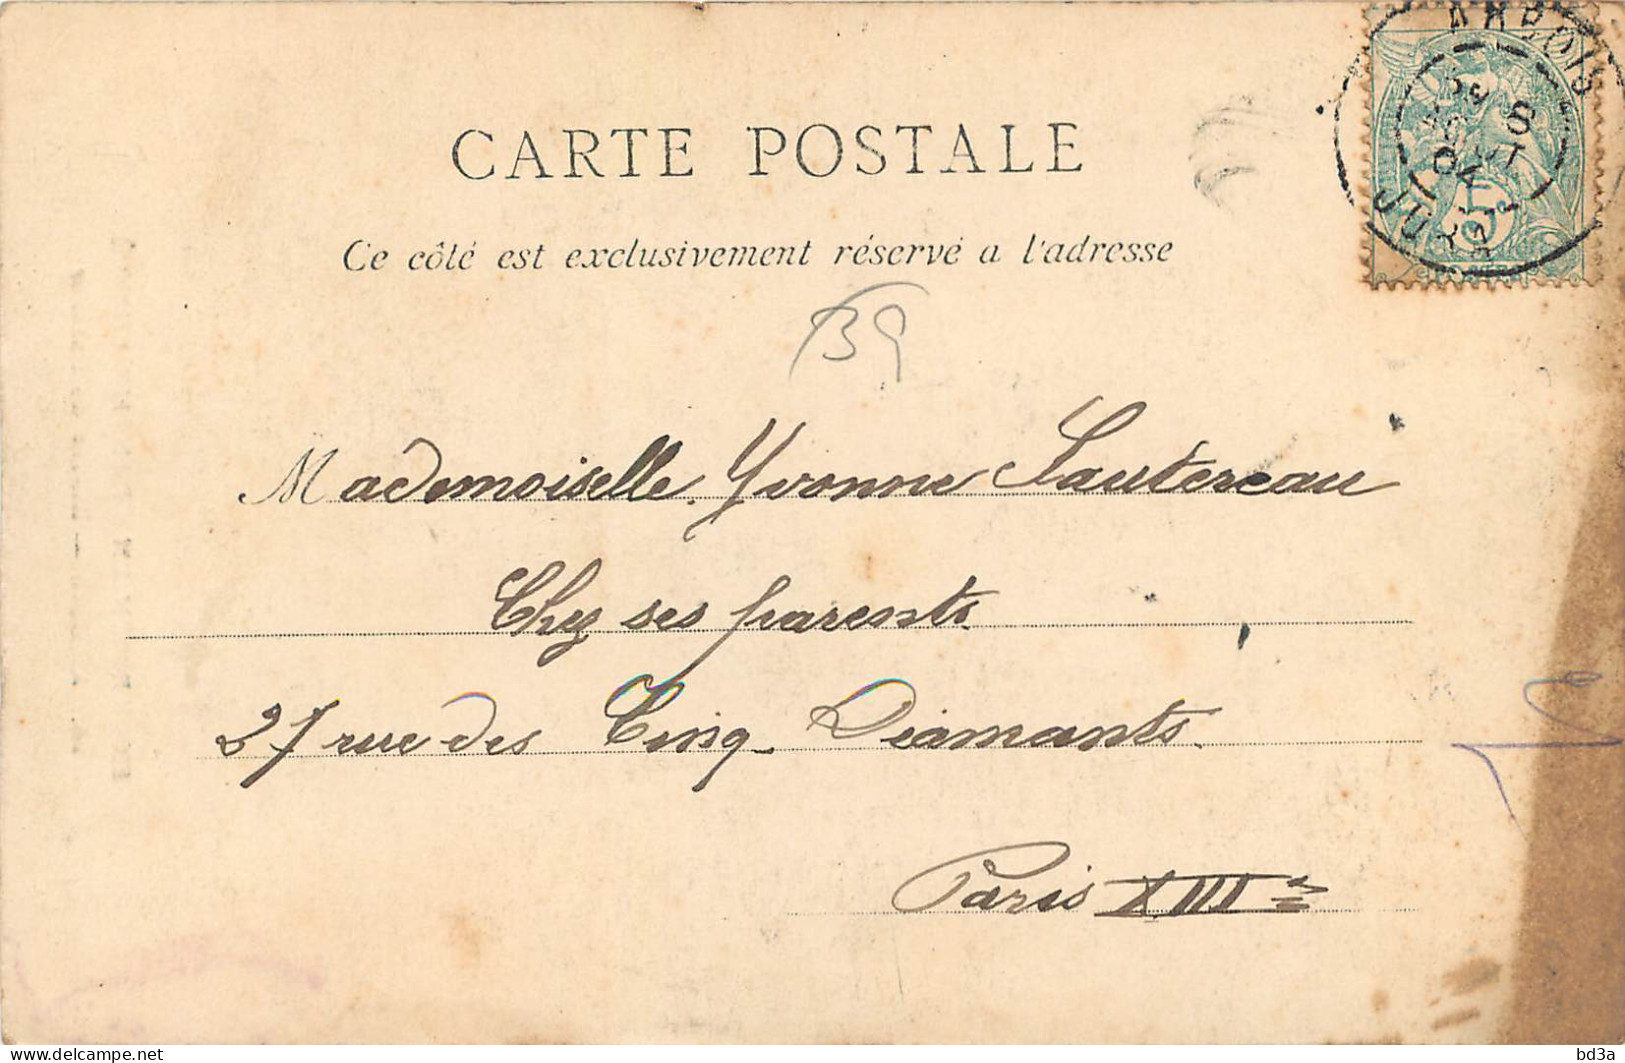 ARBOIS
8
04
JURA
5
CARTE POSTALE
Ce côté est exclusivement réservé a l'adresse
39
Mademoiselle Yvonne Sautereau
Chez ses parents
27 rue des Cinq Diamants
Paris XIIIe
bd3a